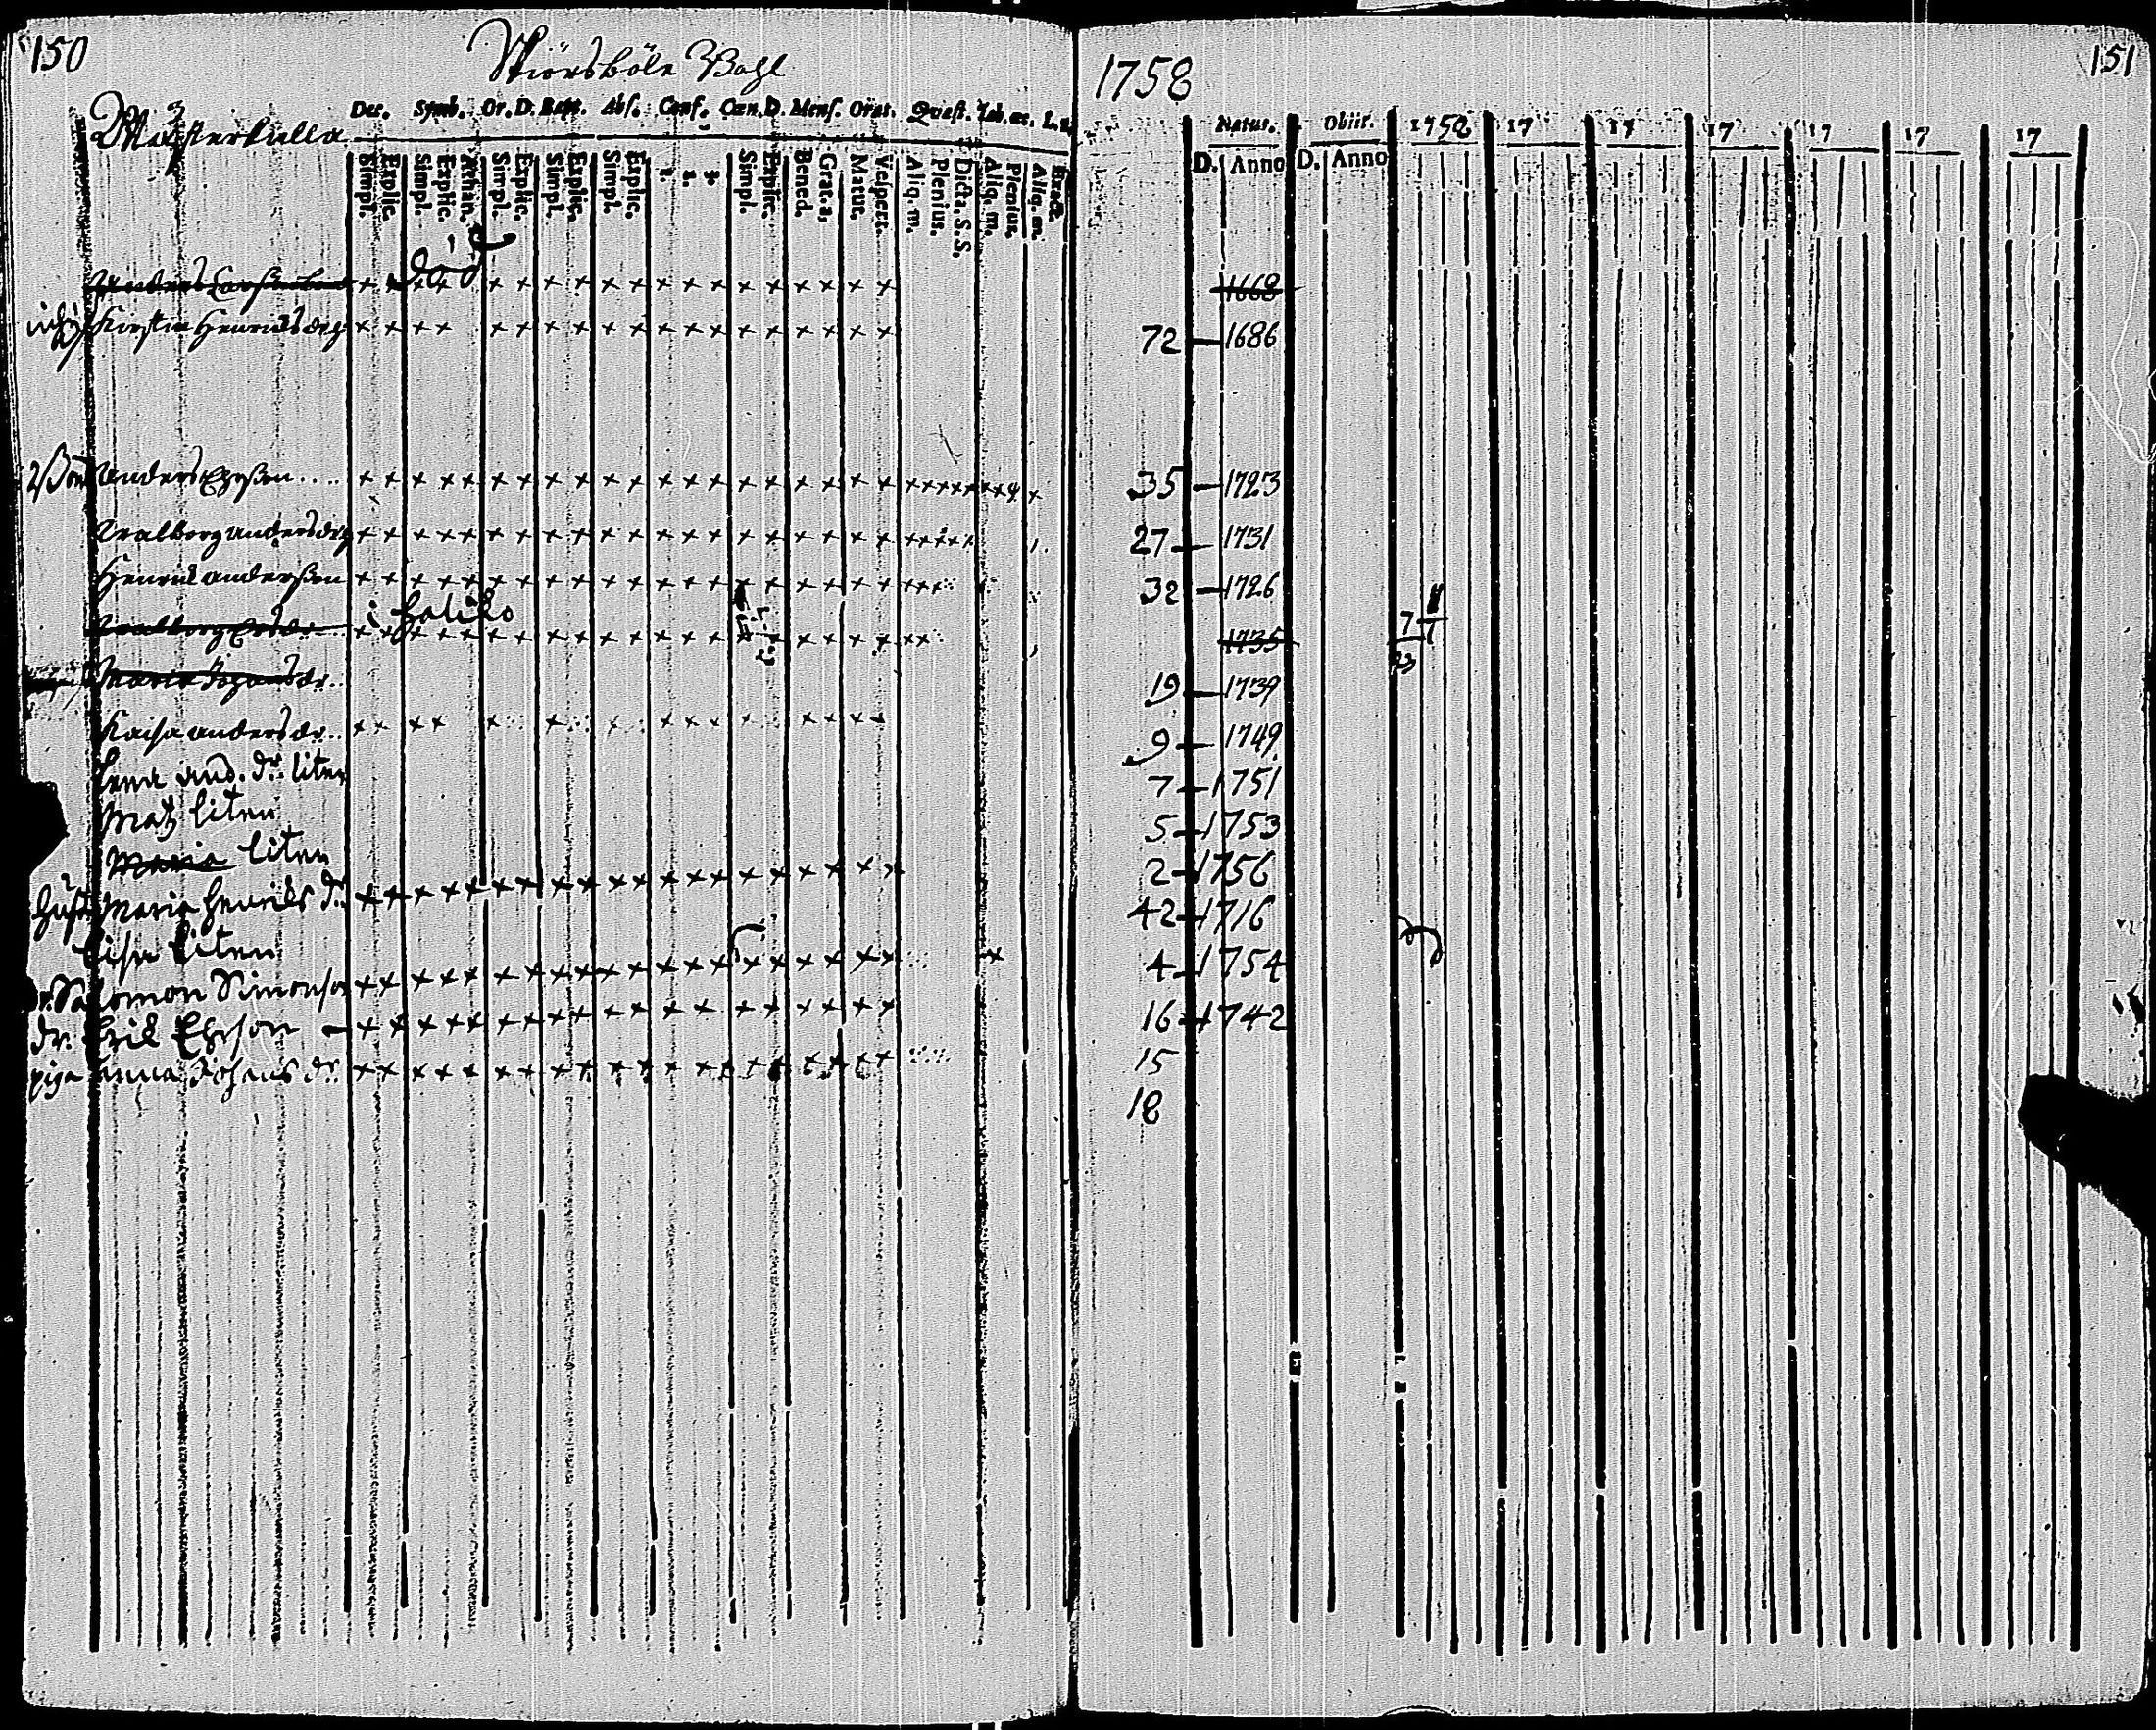 150
Stiörsböle Bohl
Mästerkulla
Dec. Symb. Or. D. Bapt. Abs. Conf. Cœn. D. Mens. Orat. Quæst. Tab. œc. L.
Simpl. Explic. Simpl. Explic. Athan. Simpl. Explic. Simpl. Explic. Simpl. Explic. 1. 2. 3. Simpl. Explic. Bened. Grat. a. Matut. Vespert. Aliq. m. Plenius. Dicta. S. S. Aliq. m. Plenius. Aliq. m. Exact.
död
Anders
Kirstin Henricsdr
Anders Ersson
Walborg andersdr
Henric andersson
Walborg
Maria Johansdr
Kaisa andersdr
Lena and. dr. liten
Matz liten
Maria liten
Maria Henrics dr.
Lisa liten
dr. Salomon Simonson
dr. Erik Ehrson
piga Anna Johans dr.
1758
151
Natus. Obiit. 1758 17 17 17 17 17 17
D. Anno D. Anno
1668
72 1686
35 1723
27 1731
32 1726
1735
19 1739
9 1749
7 1751
5 1753
2 1756
42 1716
4 1754
16 1742
15
18